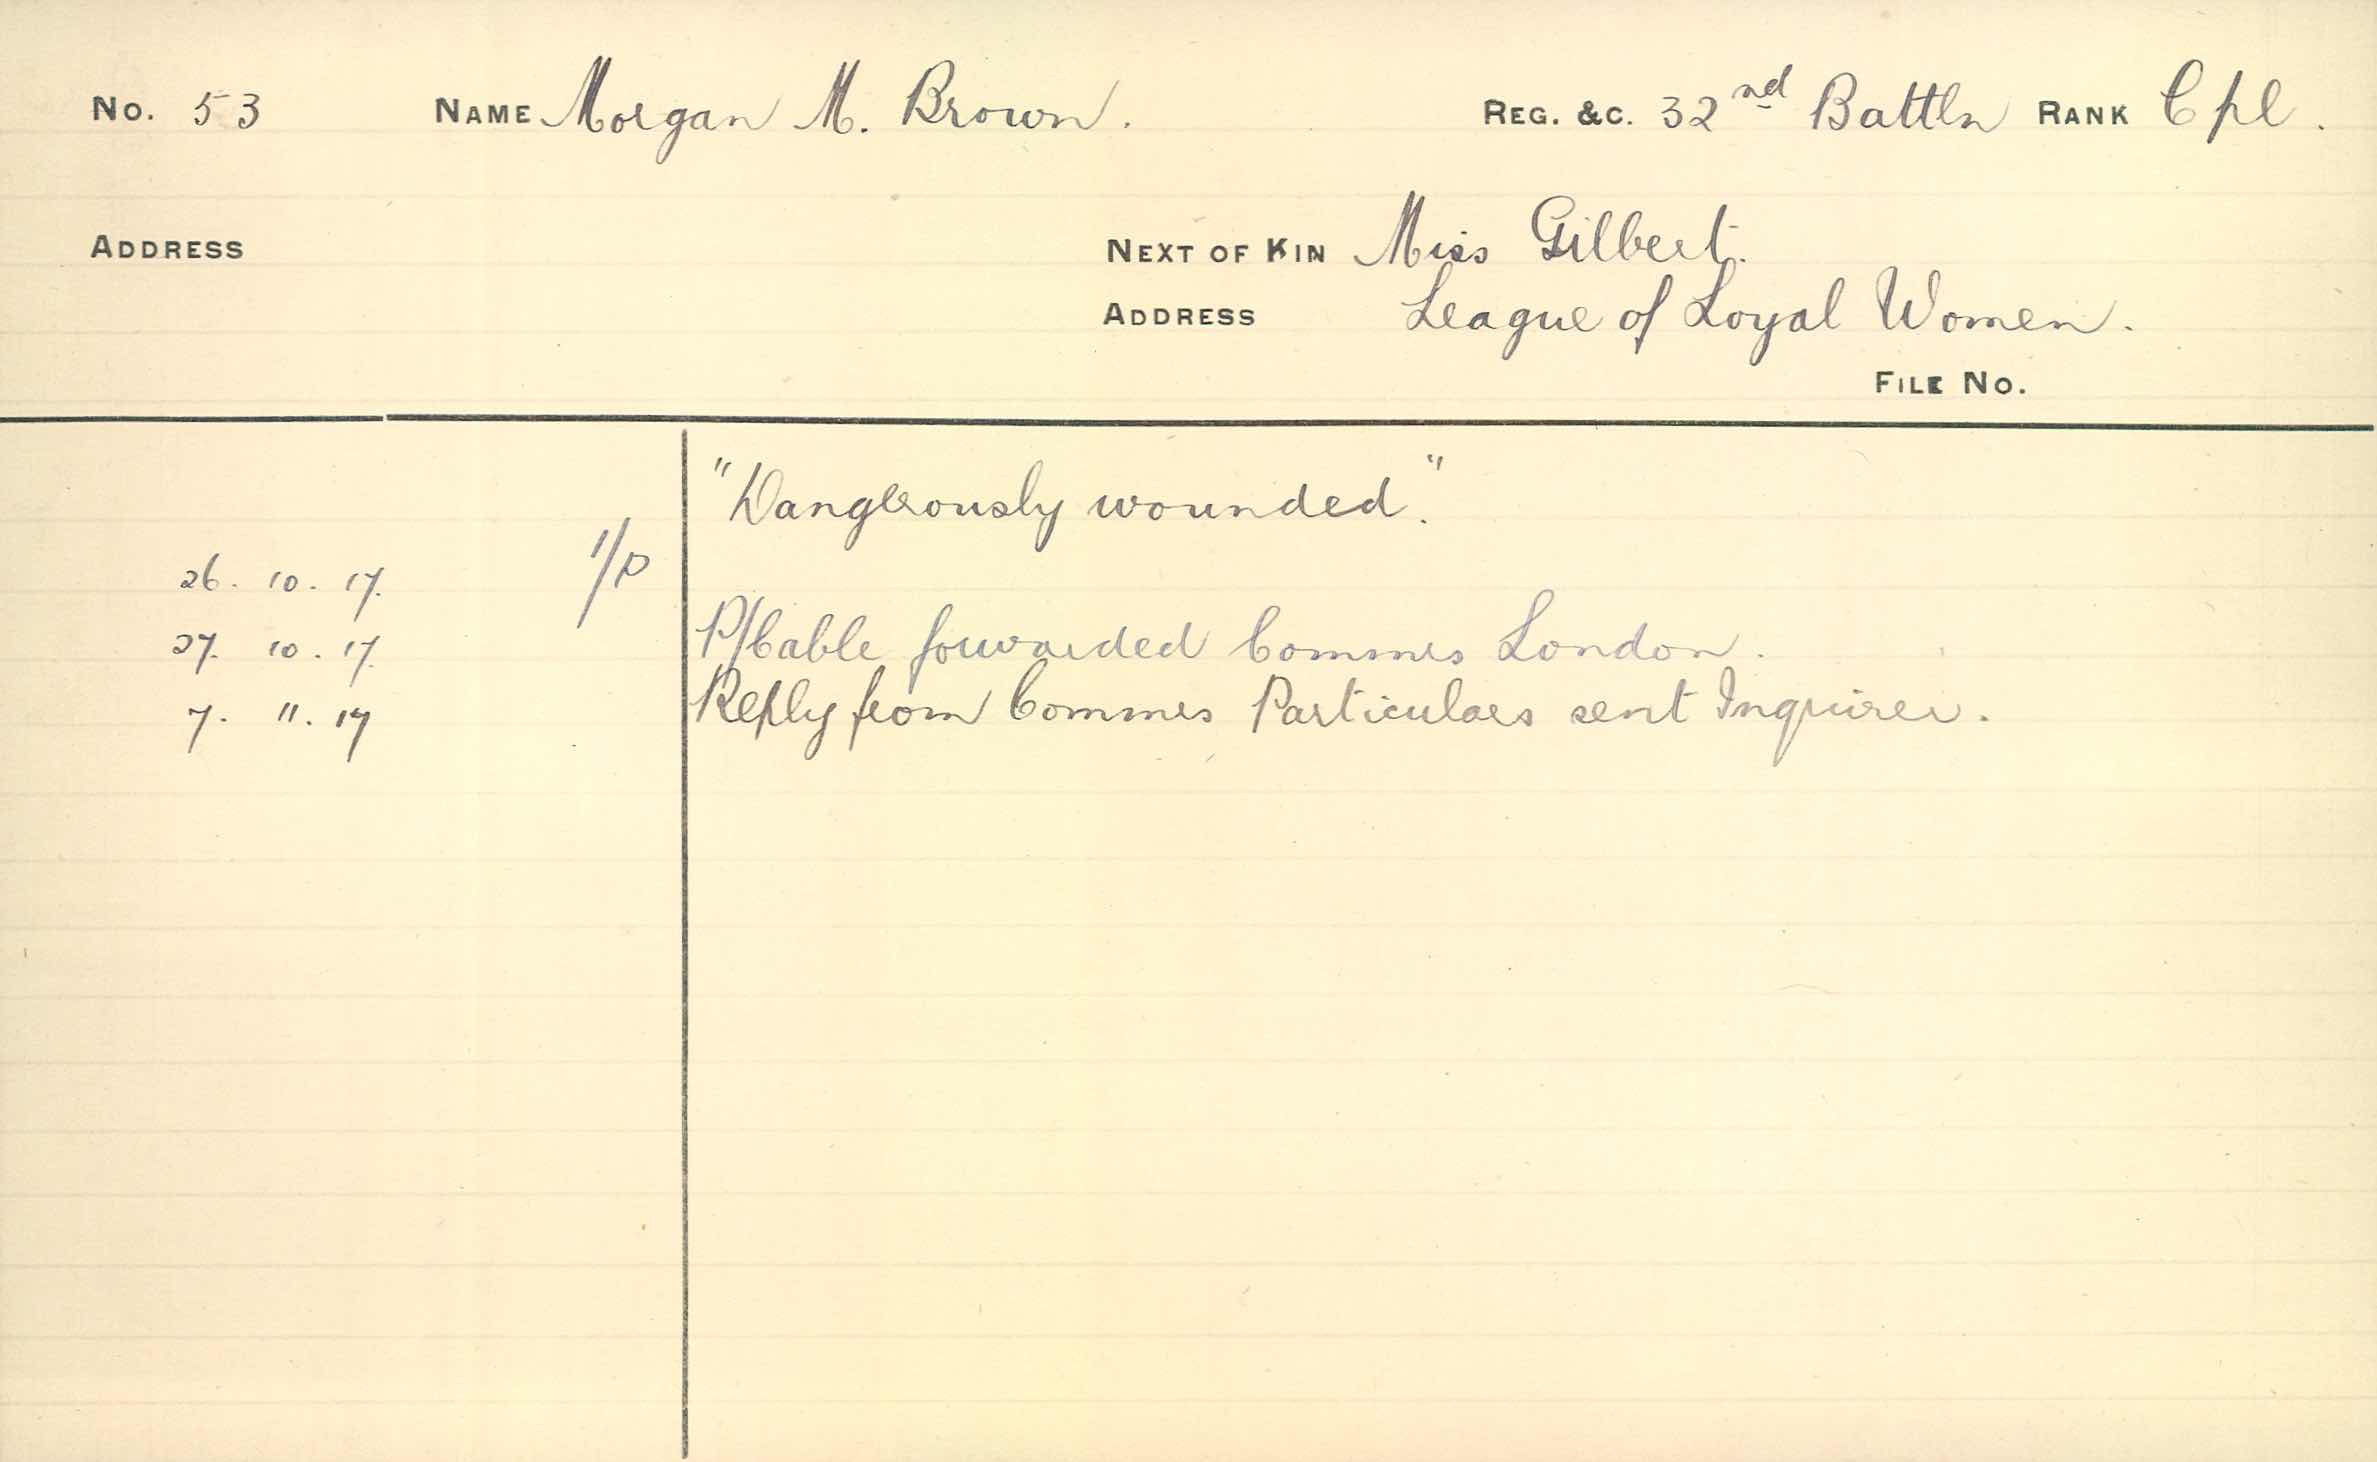 No. 53 NAME Morgan M. Brown. REG. &C. 32nd Battln RANK Cpl.
ADDRESS NEXT OF KIN Miss Gilbert.
ADDRESS League of Loyal Women.
FILE No.
"Dangerously wounded."
26. 10. 17. 1/P
27. 10. 17. P/Cable forwarded Commrs London.
7. 11. 17 Reply from Commrs Particulars sent Inquirer.